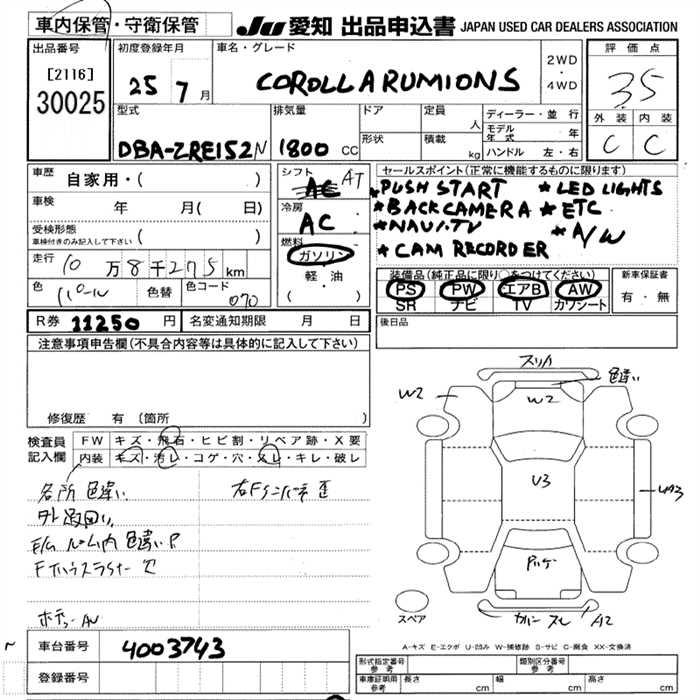 車内保管・守衛保管 JU 愛知 出品申込書 JAPAN USED CAR DEALERS ASSOCIATION
出品番号
[2116]
30025
初度登録年月
25 7 月
車名・グレード
COROLLARUMIONS
2WD
・
4WD
評価点
3.5
外装 内装
C C
型式
DBA-ZRE152N
排気量
1800 CC
ドア
形状
定員
人
積載
kg
ディーラー・並行
モデル年式 年
ハンドル 左・右
車歴 自家用・( )
車検 年 月( 日)
受検形態
車検付きのみ記入して下さい ( )
走行 10 万 8 千 275 km
色 パール 色替 色コード 070
シフト
AC AT
冷房
AC
燃料
ガソリン
軽・油
( )
セールスポイント(正常に機能するものに限ります)
★PUSH START ★LED LIGHTS
★BACKCAMERA ★ETC
★NAVI・TV ★A/W
★CAM RECORDER
装備品(純正品に限り○をつけてください)
PS PW エアB AW
SR ナビ TV カワシート
新車保証書
有・無
R券 11250 円 名変通知期限 月 日
後日品
注意事項申告欄(不具合内容等は具体的に記入して下さい)
修復歴 有(箇所 )
検査員記入欄
FW キズ・飛石・ヒビ割・リペア跡・X要
内装 キズ・汚レ・コゲ・穴・スレ・キレ・破レ
各所 色違い
ボデー AU
スリカ
色違い
W2
W2
U3
UA3
A2
スペア
A-キズ E-エクボ U-凹み W-補修跡 S-サビ C-腐食 XX-交換済
車台番号 4003743
登録番号
形式指定番号
参考
類別区分番号
参考
車庫証明用
参考
長さ cm 幅 cm 高さ cm